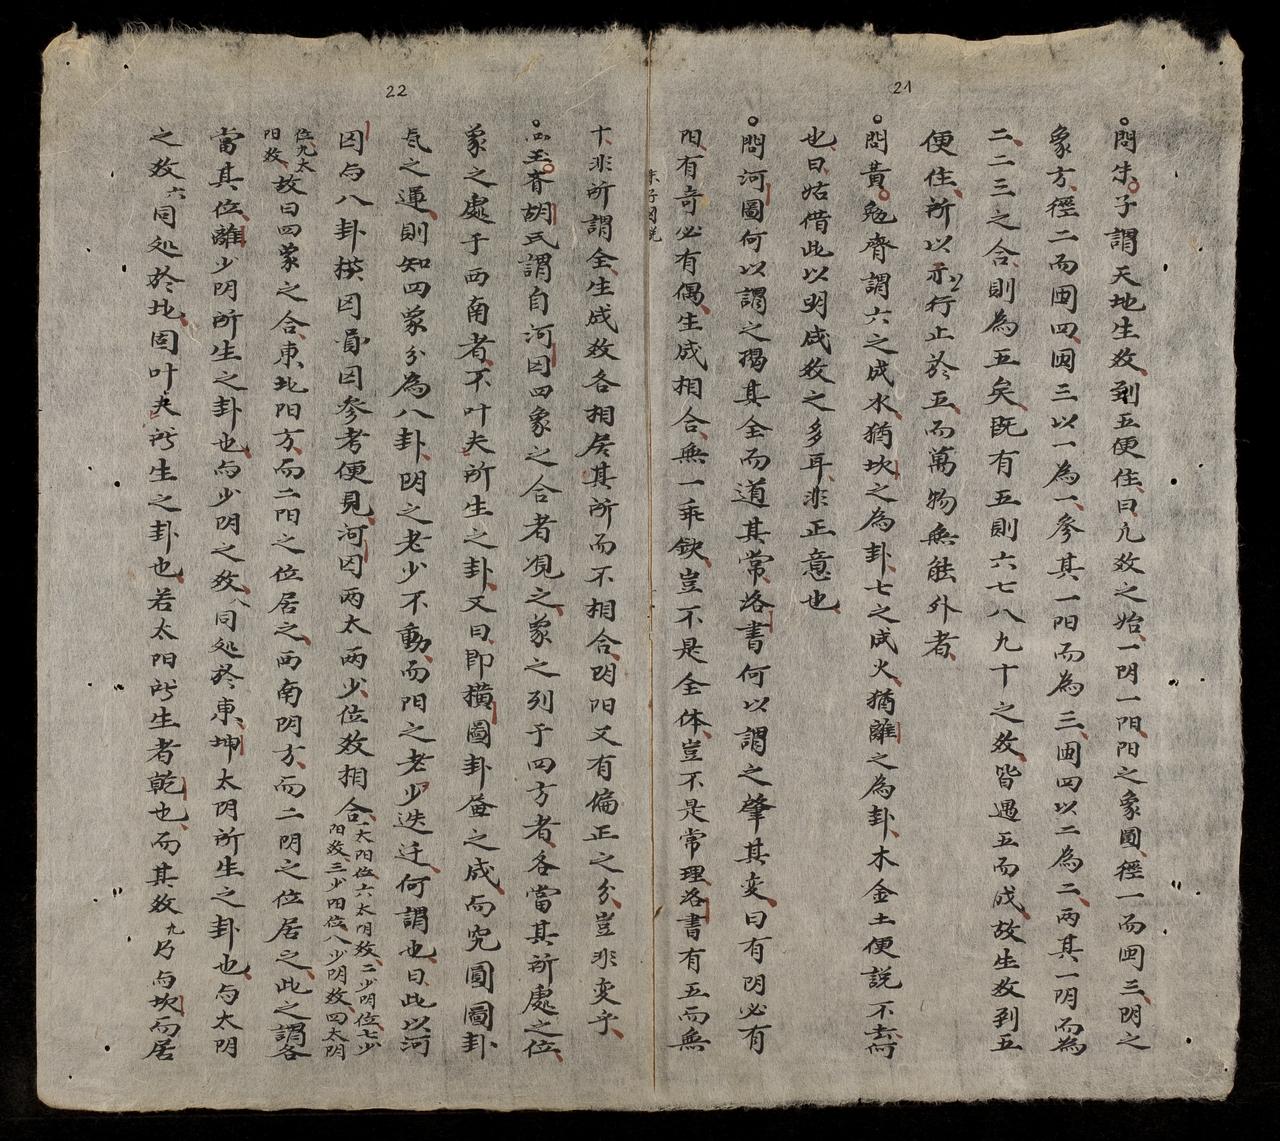 21
○問朱子謂天地生数到五便住曰凡数之始一阴一阳阳之象圓徑一而囲三阴之
象方徑二而囲四囲三以一為一参其一阳而為三囲四以二為二两其一阴而為
二二三之合則為五矣既有五則六七八九十之数皆遇五而成故生数到五
便住所以示行止於五而萬物無能外者
○問黄勉齋謂六之成水猶坎之為卦七之成火猶離之為卦木金土便説不去何
也曰姑借此以明成数之多耳非正意也
○問河圖何以謂之揭其全而道其常洛書何以謂之肇其変曰有阴必有
阳有竒必有偶生成相合無一乖欤豈不是全体豈不是常理洛書有五而無
22
十非所謂全生成数各相居其所而不相合阴阳又有偏正之分豈非变乎
○玉斉胡氏謂自河図四象之合者覌之象之列于四方者各當其所處之位
象之處于西南者不叶夫所生之卦又曰即横圖卦畫之成而究圓圖卦
氣之運則知四象分為八卦阴之老少不動而阳之老少迭迁何謂也曰此以河
図与八卦横図圓図参考便見河図两太两少位数相合一太阳位六太阴数二少阴位七少
阳数三少阳位八少阴数四太阴
位九太
阳数故曰四象之合東北阳方而二阳之位居之西南阴方而二阴之位居之此之謂各
當其位離少阴所生之卦也与少阴之数八同処於東坤太阴所生之卦也与太阴
之数六同処於北固叶夫所生之卦也若太阳所生者乾也而其数九乃与坎而居